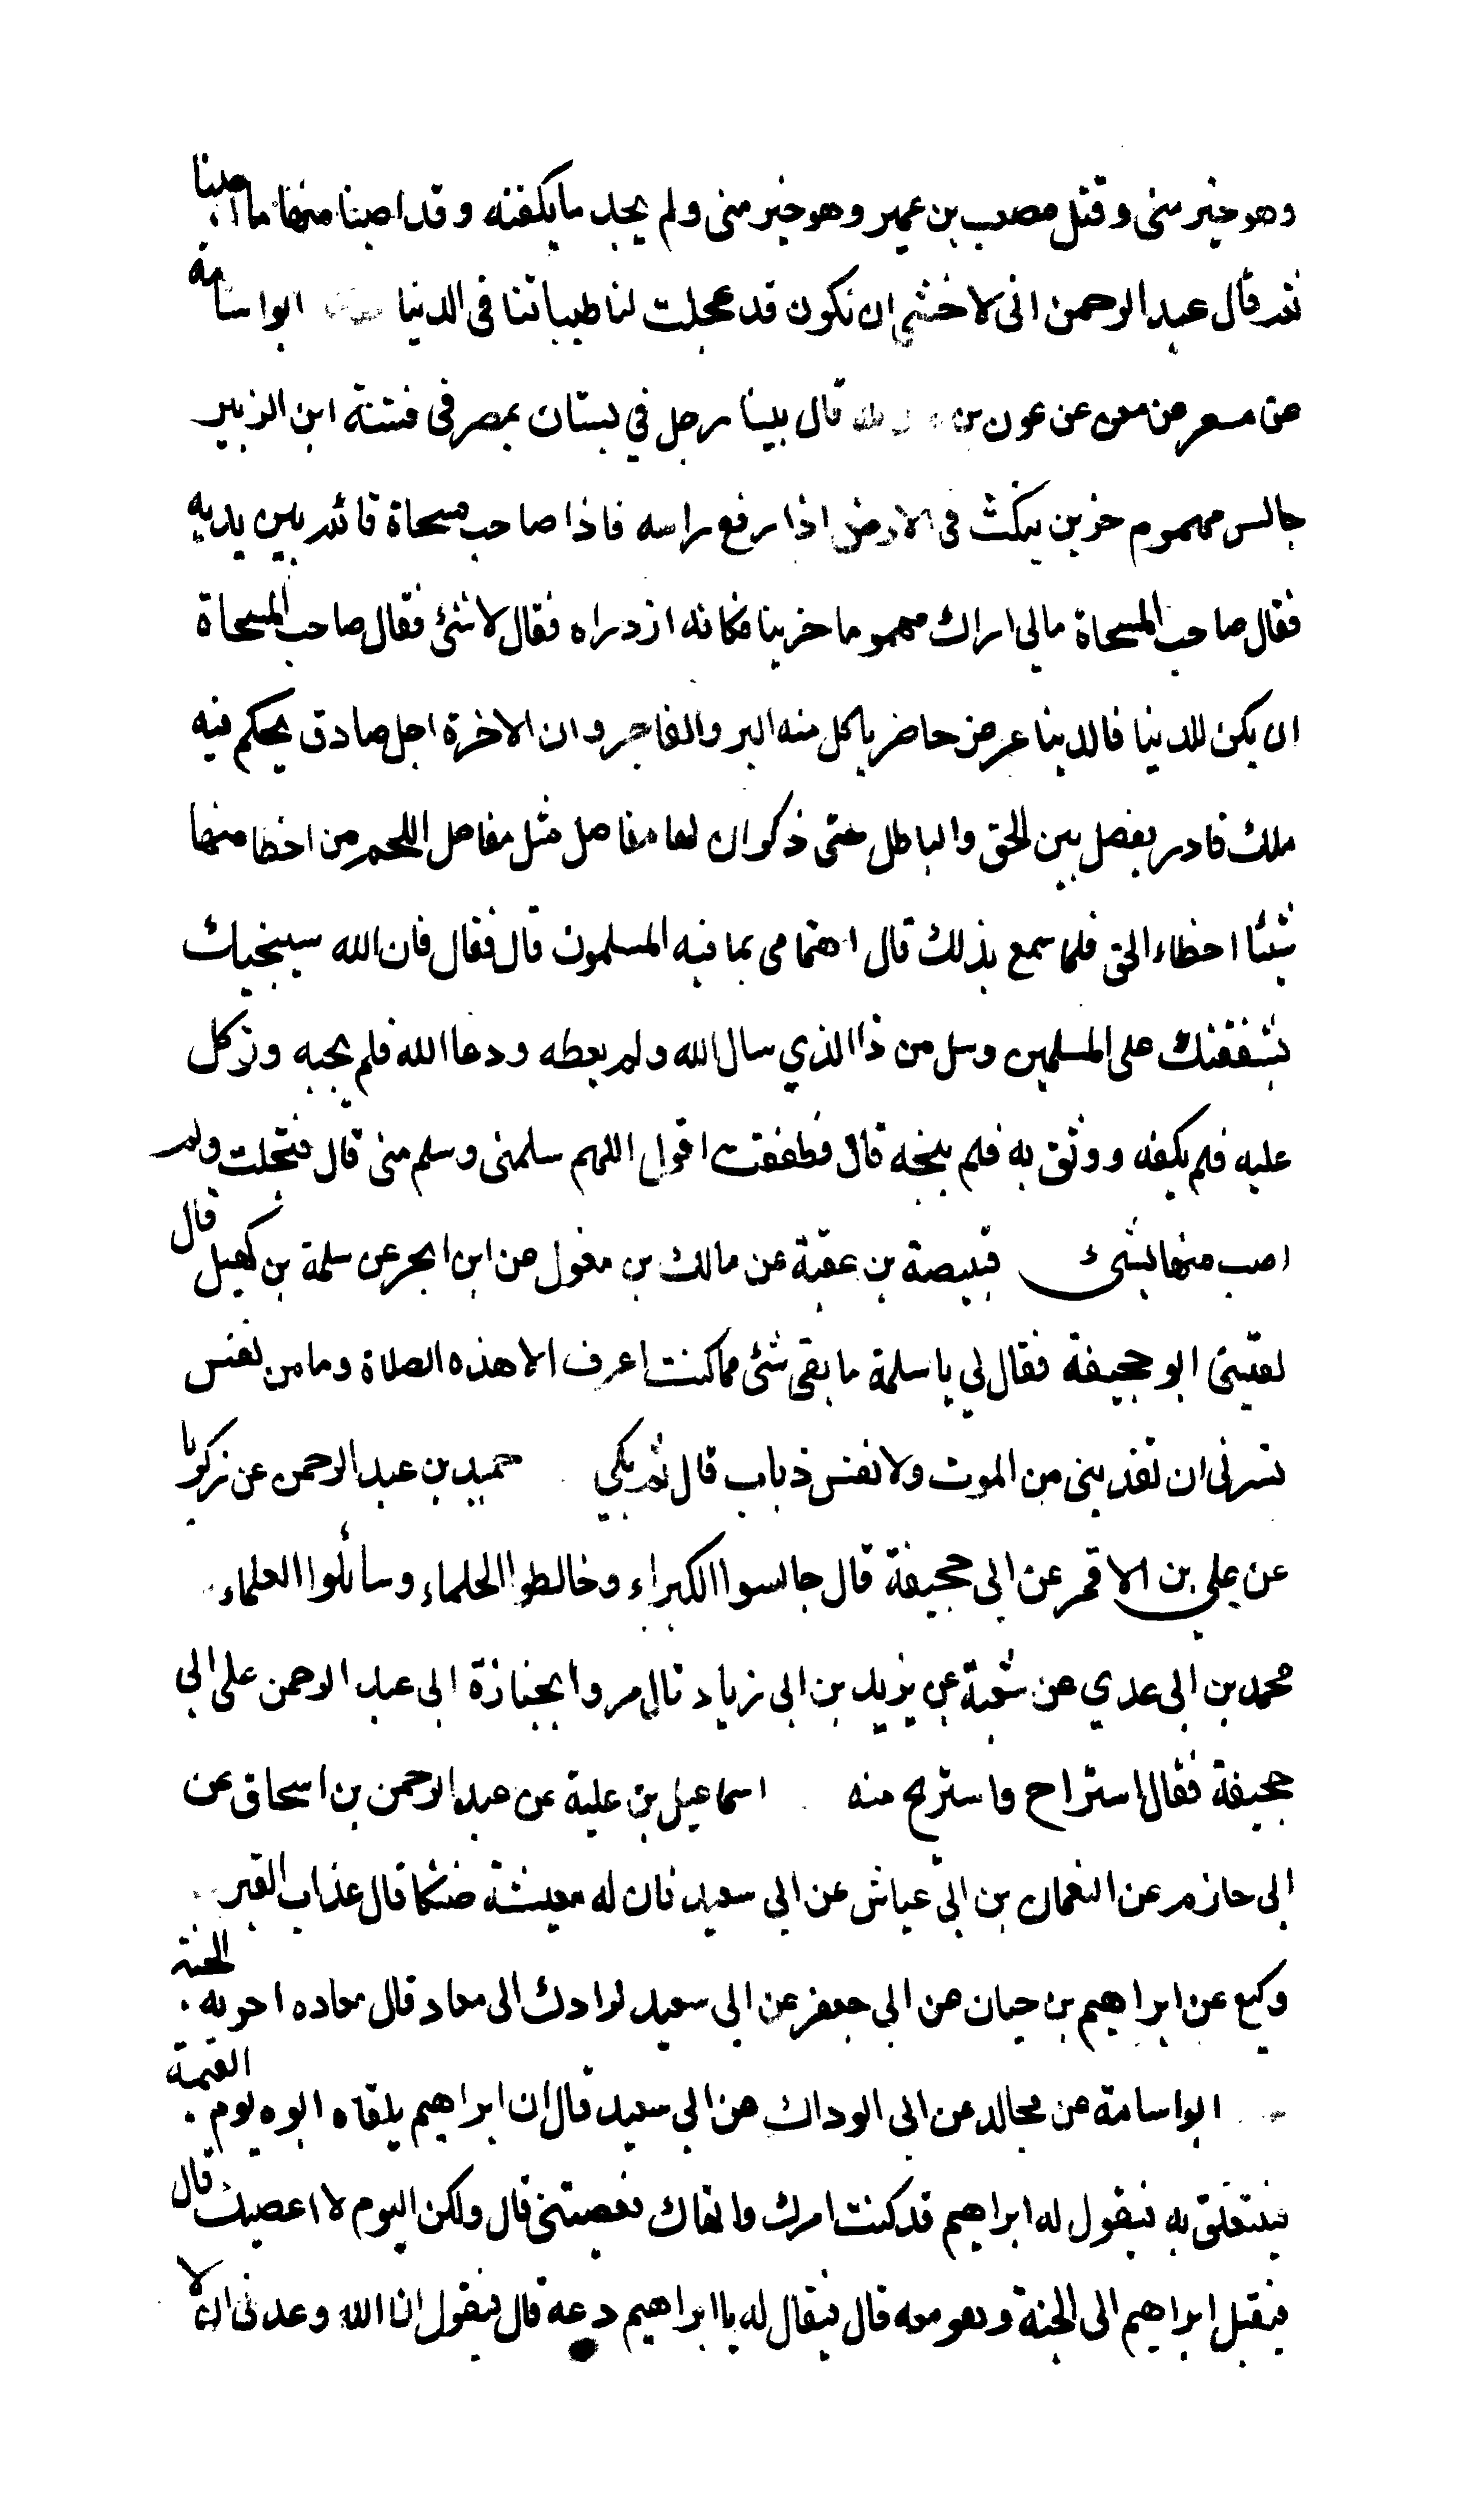 وهو خير منى وقتل مصعب بن عمير وهو خير منى ولم يجد ما يكفنه وقد اصبنا منها ما اصبنا
ثم قال عبد الرحمن انى لاخشى ان نكون قد عجلت لنا طيباتنا فى الدنيا ابو اسامة
عن مسعر عن معن عن عون بن عبد الله قال بينا رجل في بستان بمصر فى فتنة ابن الزبير
جالس مهموم حزين ينكث فى الارض اذا رفع راسه فاذا صاحب مسحاة قائم بين يديه
فقال صاحب المسحاة مالى اراك مهموما حزينا فكانه ازدراه فقال لا شئ فقال صاحب المسحاة
ان يكن للدنيا فالدنيا عرض حاضر ياكل منه البر والفاجر وان الاخرة اجل صادق يحكم فيه
ملك قادر يفصل بين الحق والباطل حتى ذكر ان لها مفاصل مثل مفاصل اللحم من اخطا منها
شيئا اخطاء الحق فلما سمع بذلك قال اهتمامى بما فيه المسلمون قال فقال فان الله سينجيك
بشفقتك على المسلمين وسل من ذا الذي سال الله ولم يعطه ودعا الله فلم يجبه وتوكل
عليه فلم يكفه ووثق به فلم ينجه قال فطفقت اقول اللهم سلمنى وسلم منى قال فتجلت ولم
اصب منها بشئ قبيصة بن عقبة عن مالك بن مغول عن ابن ابحر عن سلمة بن كهيل قال
لقينى ابو جحيفة فقال لي يا سلمة ما بقى شئ مما كنت اعرف الا هذه الصلاة وما من نفس
تسرنى ان تفدينى من الموت ولا نفس ذباب قال ثم بكي حميد بن عبد الرحمن عن زكريا
عن علي بن الاقمر عن ابى جحيفة قال جالسوا الكبراء وخالطوا الحلماء وسائلوا العلماء
محمد بن ابى عدي عن شعبة عن يزيد بن ابى زياد قال مروا بجنازة ابى عبد الرحمن على ابي
جحيفة فقال استراح واستريح منه اسماعيل بن علية عن عبد الرحمن بن اسحاق عن
ابى حازم عن النعمان بن ابي عياش عن ابي سعيد فان له معيشة ضنكا قال عذاب القبر
وكيع عن ابراهيم بن حيان عن ابي جعفر عن ابى سعيد لرادك الى معاد قال معاده اخرته الجنة
ابو اسامة عن مجالد عن ابى الوداك عن ابي سعيد قال ان ابراهيم يلقاه ابوه يوم القيمة
فيتعلق به فيقول له ابراهيم قد كنت امرك وانهاك فعصيتنى قال ولكن اليوم لا اعصيك قال
فيقبل ابراهيم الى الجنة وهو معه قال فيقال له يا ابراهيم دعه قال فيقول ان الله وعدنى ان لا